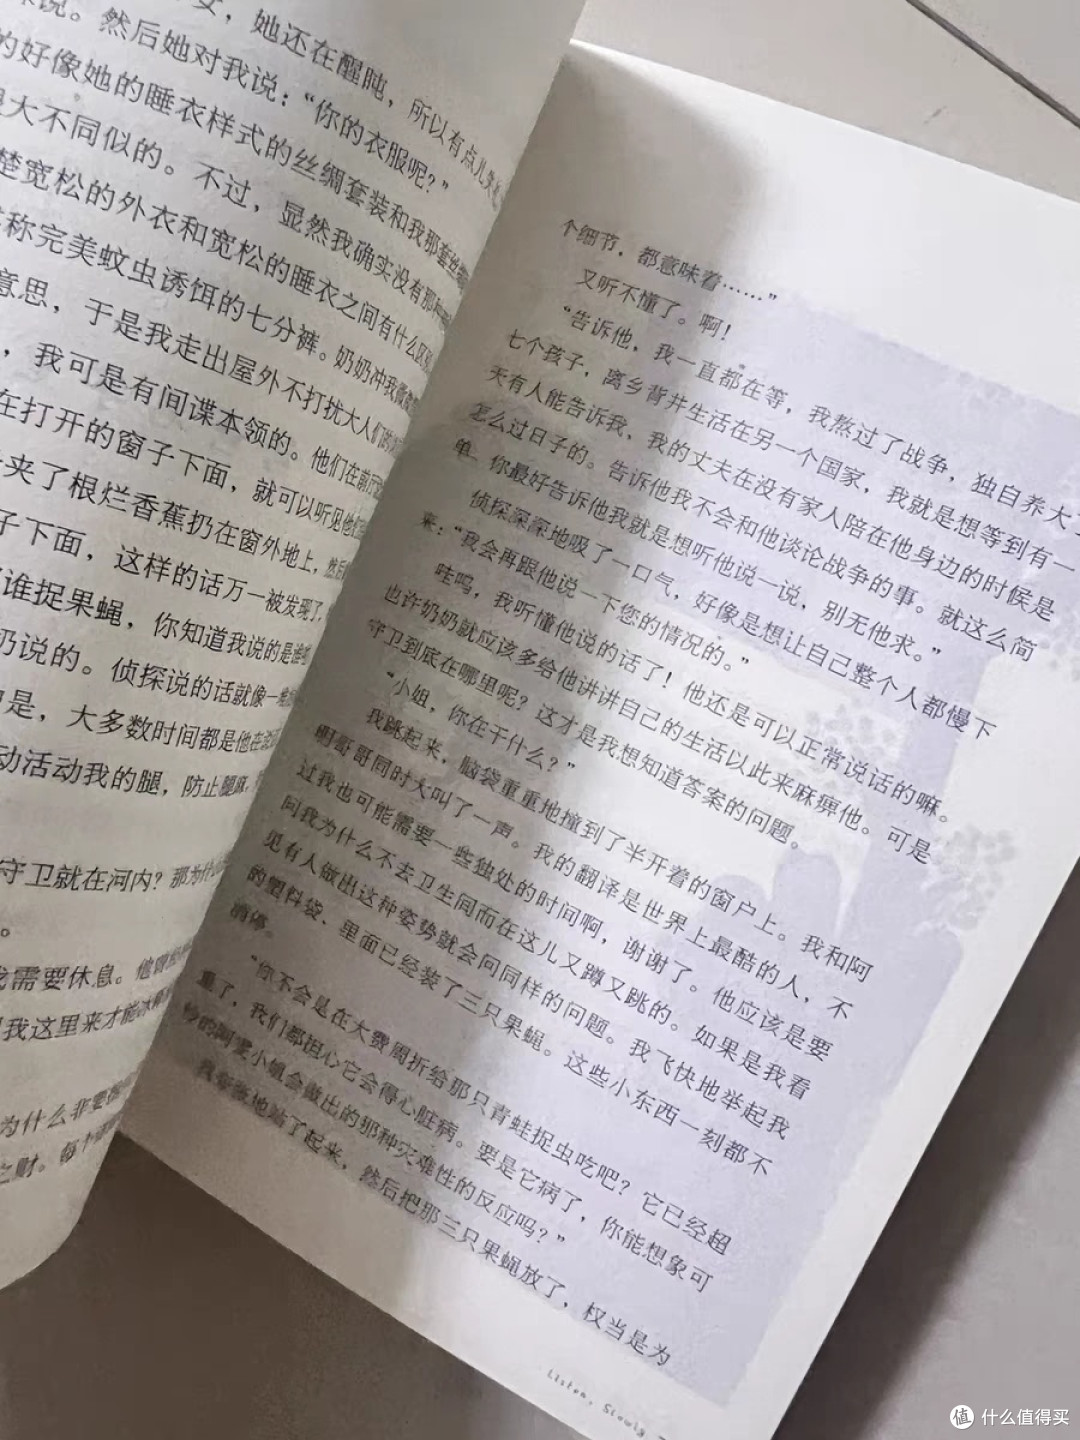 女，她还在醒盹，所以有点儿
说。然后她对我说：“你的衣服呢？”
的好像她的睡衣样式的丝绸套装和我那套
大不同似的。不过，显然我确实没有那种
楚宽松的外衣和宽松的睡衣之间有什么区别
称完美蚊虫诱饵的七分裤。奶奶冲我微
意思，于是我走出屋外不打扰大人们的
，我可是有间谍本领的。他们在前厅
在打开的窗子下面，就可以听见他们
夹了根烂香蕉扔在窗外地上，然后
子下面，这样的话万一被发现了，
谁捉果蝇，你知道我说的是谁
奶说的。侦探说的话就像一
是，大多数时间都是他在说
动活动我的腿，防止腿麻，
守卫就在河内？那为什么
。
需要休息。他
我这里来才能
为什么非要
之财。每个
个细节，都意味着……”
又听不懂了。啊！
“告诉他，我一直都在等，我熬过了战争，独自养大了
七个孩子，离乡背井生活在另一个国家，我就是想等到有一
天有人能告诉我，我的丈夫在没有家人陪在他身边的时候是
怎么过日子的。告诉他我不会和他谈论战争的事。就这么简
单。你最好告诉他我就是想听他说一说，别无他求。”
侦探深深地吸了一口气，好像是想让自己整个人都慢下
来：“我会再跟他说一下您的情况的。”
哇呜，我听懂他说的话了！他还是可以正常说话的嘛。
也许奶奶就应该多给他讲讲自己的生活以此来麻痹他。可是
守卫到底在哪里呢？这才是我想知道答案的问题。
“小姐，你在干什么？”
我跳起来，脑袋重重地撞到了半开着的窗户上。我和阿
明哥哥同时大叫了一声。我的翻译是世界上最酷的人，不
过我也可能需要一些独处的时间啊，谢谢了。他应该是要
问我为什么不去卫生间而在这儿又蹲又跳的。如果是我看
见有人做出这种姿势就会问同样的问题。我飞快地举起我
的塑料袋、里面已经装了三只果蝇。这些小东西一刻都不
消停。
“你不会是在大费周折给那只青蛙捉虫吃吧？它已经超
重了，我们都担心它会得心脏病。要是它病了，你能想象可
怜的阿爱小姐会做出的那种灾难性的反应吗？”
我地站了起来，然后把那三只果蝇放了，权当是为
Listen, Slowly
值 什么值得买